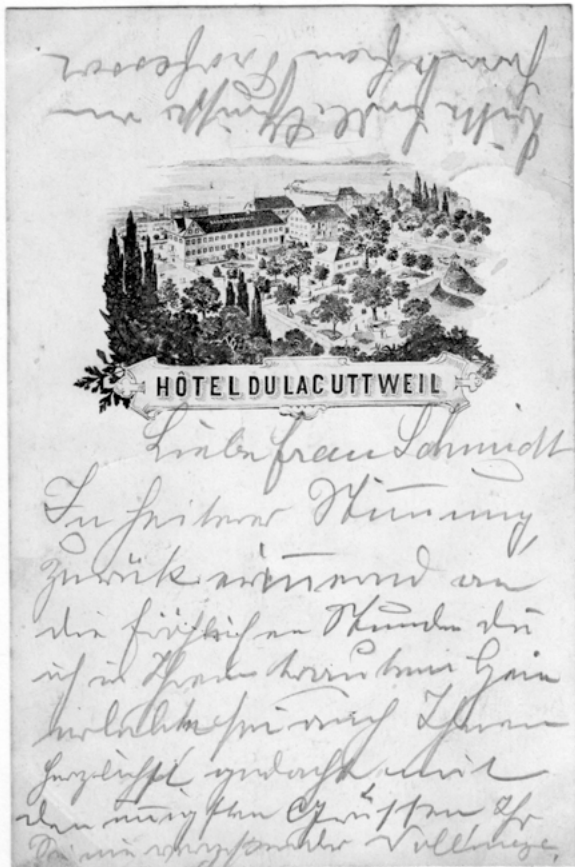 Frau Professor
bitte
HÔTEL DU LAC UTTWEIL
Liebe Frau Schmidt
In heiterer Stimmung,
zurück erinnernd an
die fröhlichen Stunden die
ich in Ihrem trauten Heim
erlebte sei auch Ihnen
herzlichst gedacht mit
den innigsten Grüssen Ihr
Sie nie vergessender